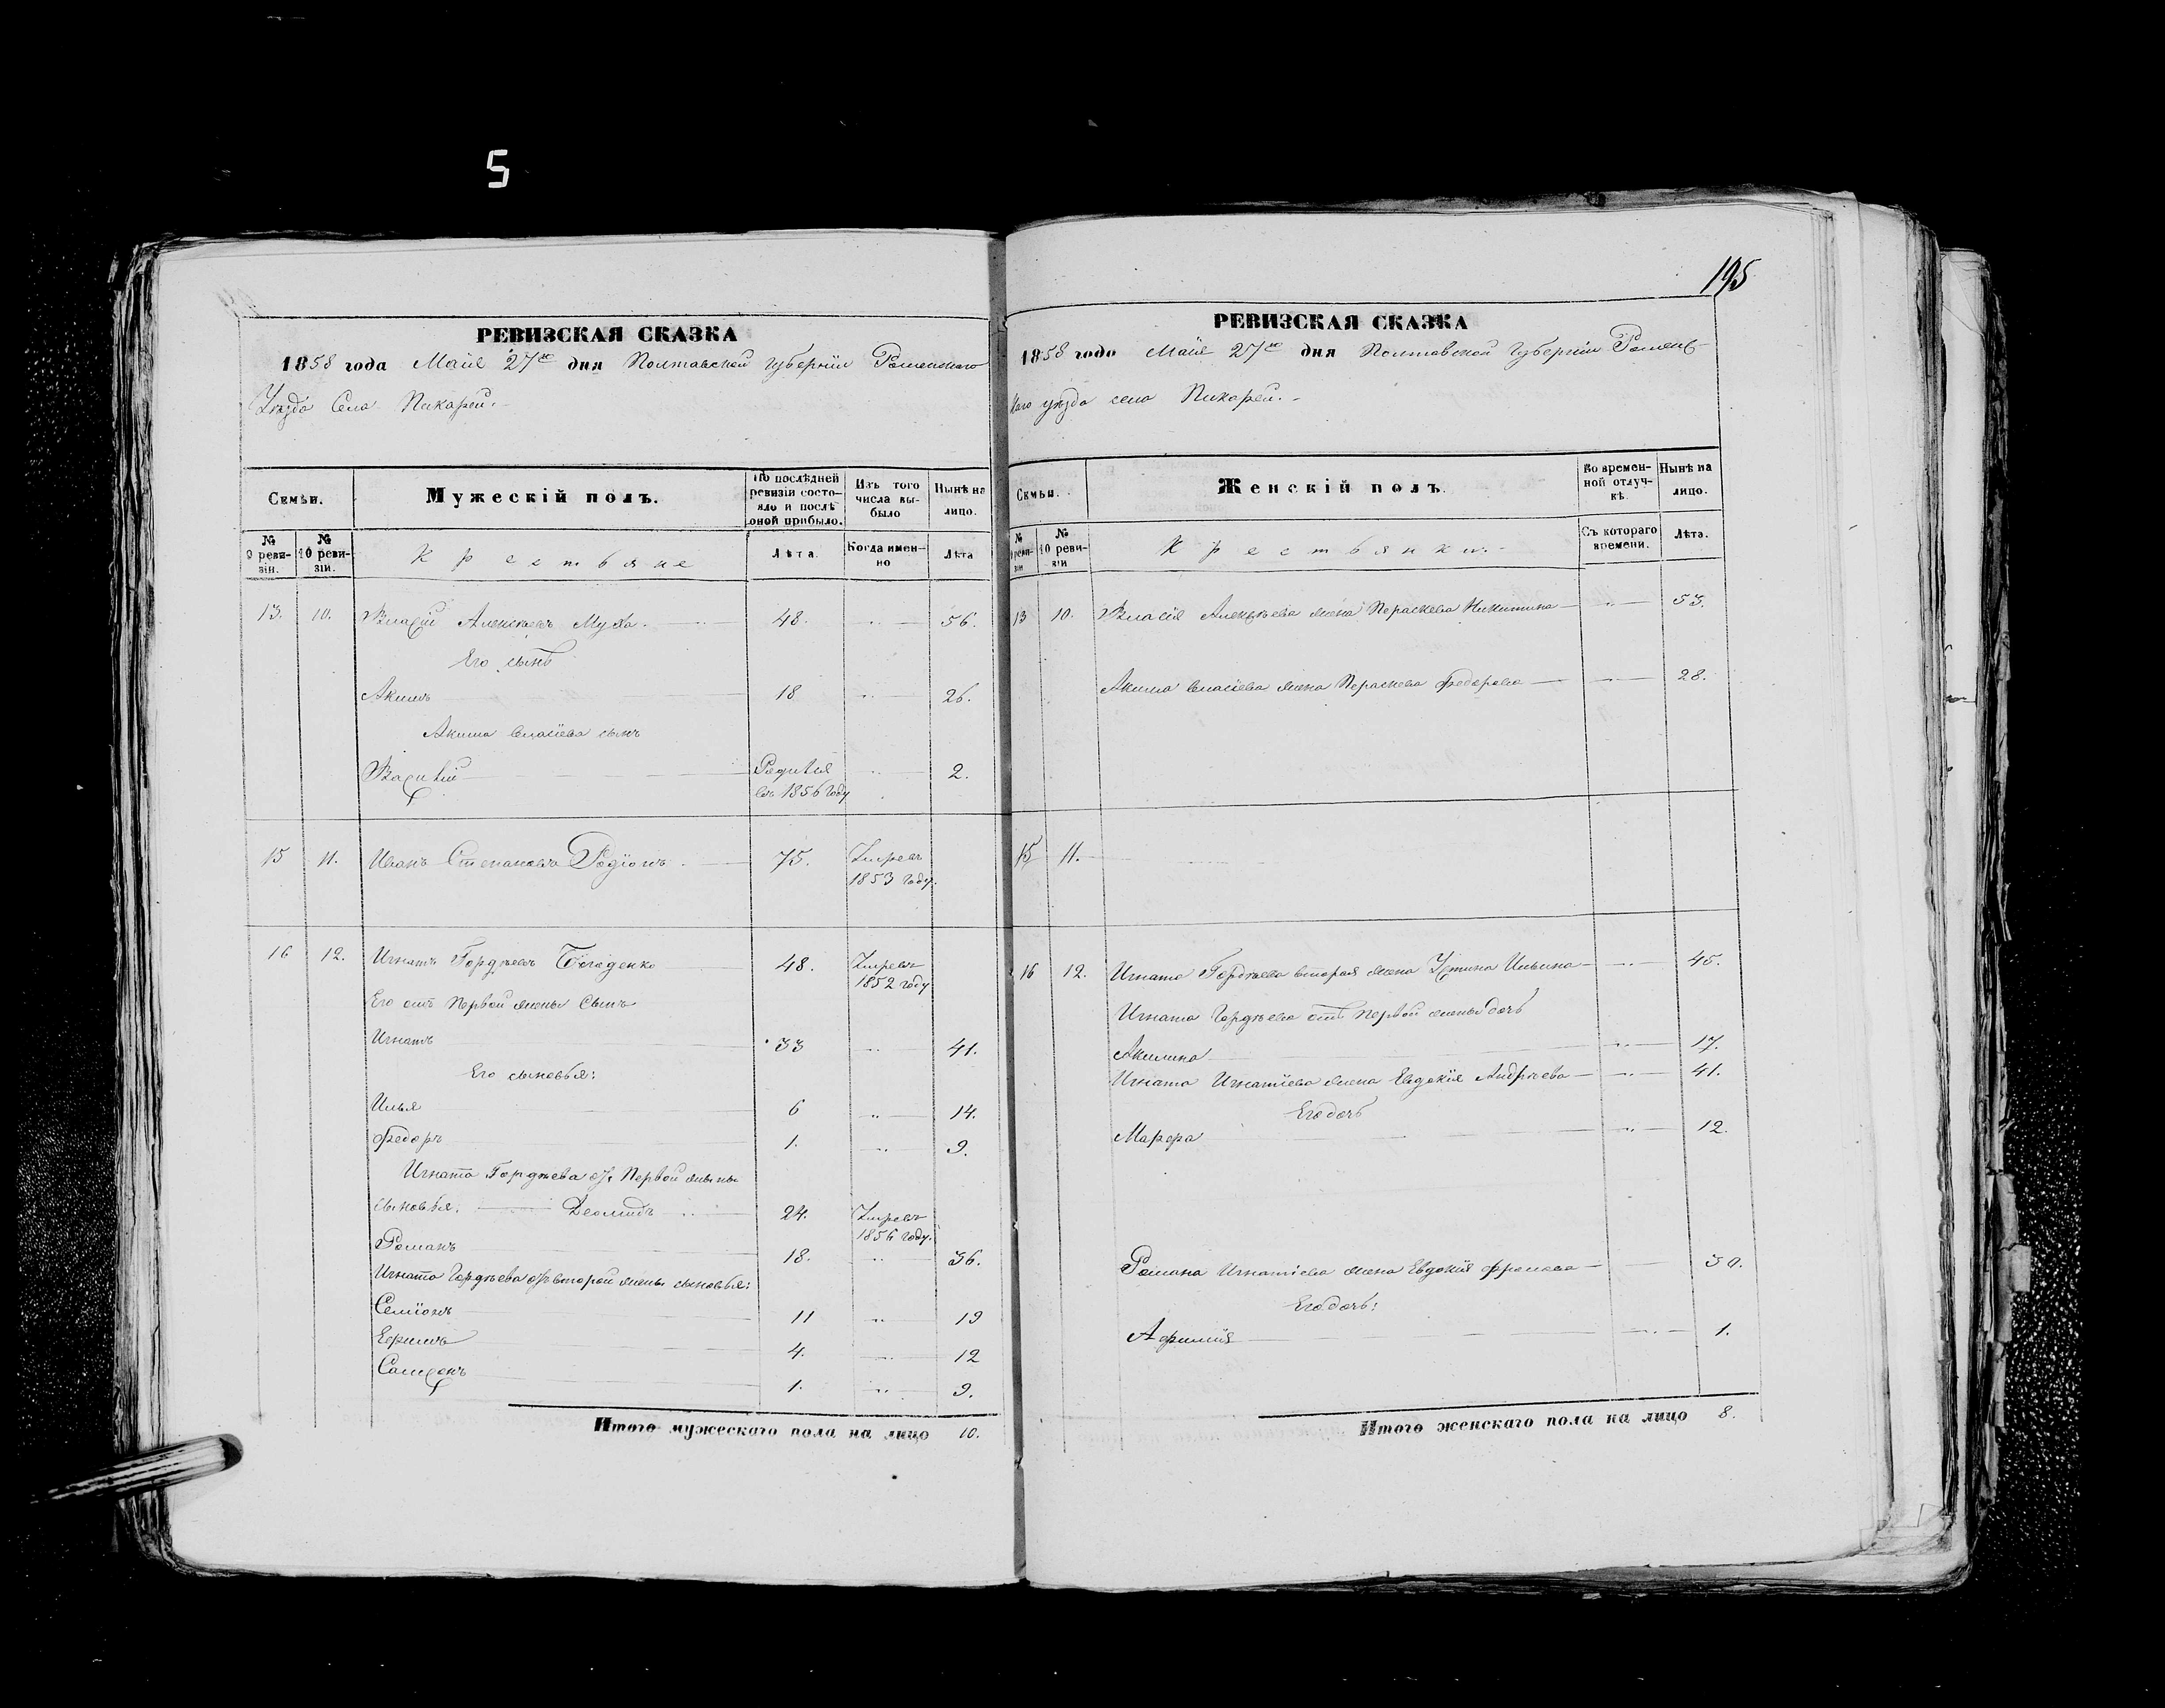 5
195
РЕВИЗСКАЯ СКАЗКА
1858 года Маія 27го дня Полтавской Губерніи Роменскаго
Уѣзда Села Пикарей.
Семьи.
Мужескій полъ.
По послѣдней ревизіи состояло и послѣ оной прибыло.
Изъ того числа выбыло
Нынѣ на лицо.
№ 9 ревизіи.
№ 10 ревизіи.
Крестьяне
Лѣта.
Когда именно
Лѣта
13. 10. Власій Алексѣевъ Муха. 48. 56.
Его сынъ
Акимъ 18 26.
Акима Власіева сынъ
Василій Родился въ 1856 году 2.
15 11. Иванъ Степановъ Родіонъ. 75. Умре въ 1853 году.
16 12. Игнатъ Гордѣевъ 48. Умре въ 1852 году
Его отъ Первой жены Сынъ
Игнатъ 33 41.
Его сыновья:
Илья 6 14.
Федоръ 1. 9.
Игната Гордѣева отъ Первой жены
сыновья. Деомидъ 24. Умре въ 1856 году.
Романъ 18. 36.
Игната Гордѣева отъ второй жены сыновья:
Семіонъ 11 19
Ефимъ 4. 12
Сампсонъ 1. 9.
Итого мужескаго пола на лицо 10.
РЕВИЗСКАЯ СКАЗКА
1858 года Маія 27го дня Полтавской Губерніи Роменс-
каго уѣзда села Пикарей.
Семьи.
Женскій полъ.
Во временной отлучкѣ.
Нынѣ на лицо.
№ 9 ревизіи
№ 10 ревизіи
Крестьянки.
Съ котораго времени.
Лѣта.
13 10. Власія Алексѣева жена Параскева Никитина 53.
Акима Власіева жена Параскева Федорова 28.
15 11.
16 12. Игната Гордѣева вторая жена Устина Ильина 45.
Игната Гордѣева отъ Первой жены дочь
Акилина 17.
Игната Игнатіева жена Евдокія Андрѣева 41.
Его дочь
Марфа 12.
Романа Игнатіева жена Евдокія 30.
Его дочь:
Афимія 1.
Итого женскаго пола на лицо 8.